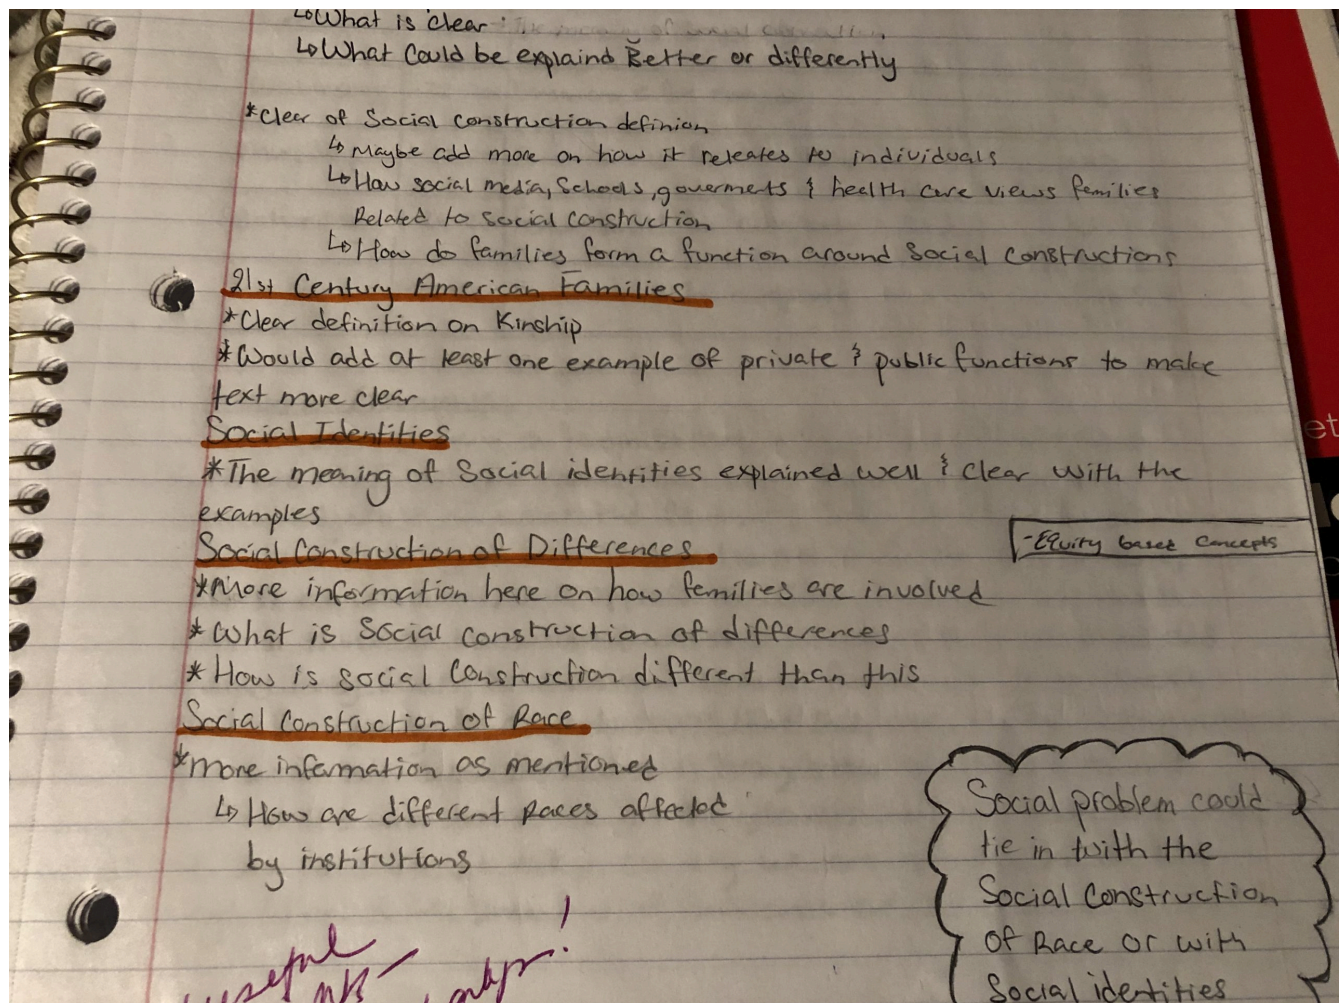 ↳What is clear
↳What Could be explaind Better or differently
*Clear of Social Construction definion
↳Maybe add more on how it releates to individuals
↳How social media, Schools, goverments & health care views families
Related to social construction
↳How do families form a function around Social Constructions
21st Century American Families
*Clear definition on Kinship
*Would add at least one example of private & public functions to make
text more clear
Social Identities
*The meaning of Social identities explained well & clear with the
examples
-Equity based concepts
Social Construction of Differences
*More information here on how families are involved
*What is Social construction of differences
*How is social Construction different than this
Social Construction of Race
*more information as mentioned
↳How are different Races affected
by institutions
Social problem could
tie in with the
Social Construction
Of Race or with
Social identities
useful
et